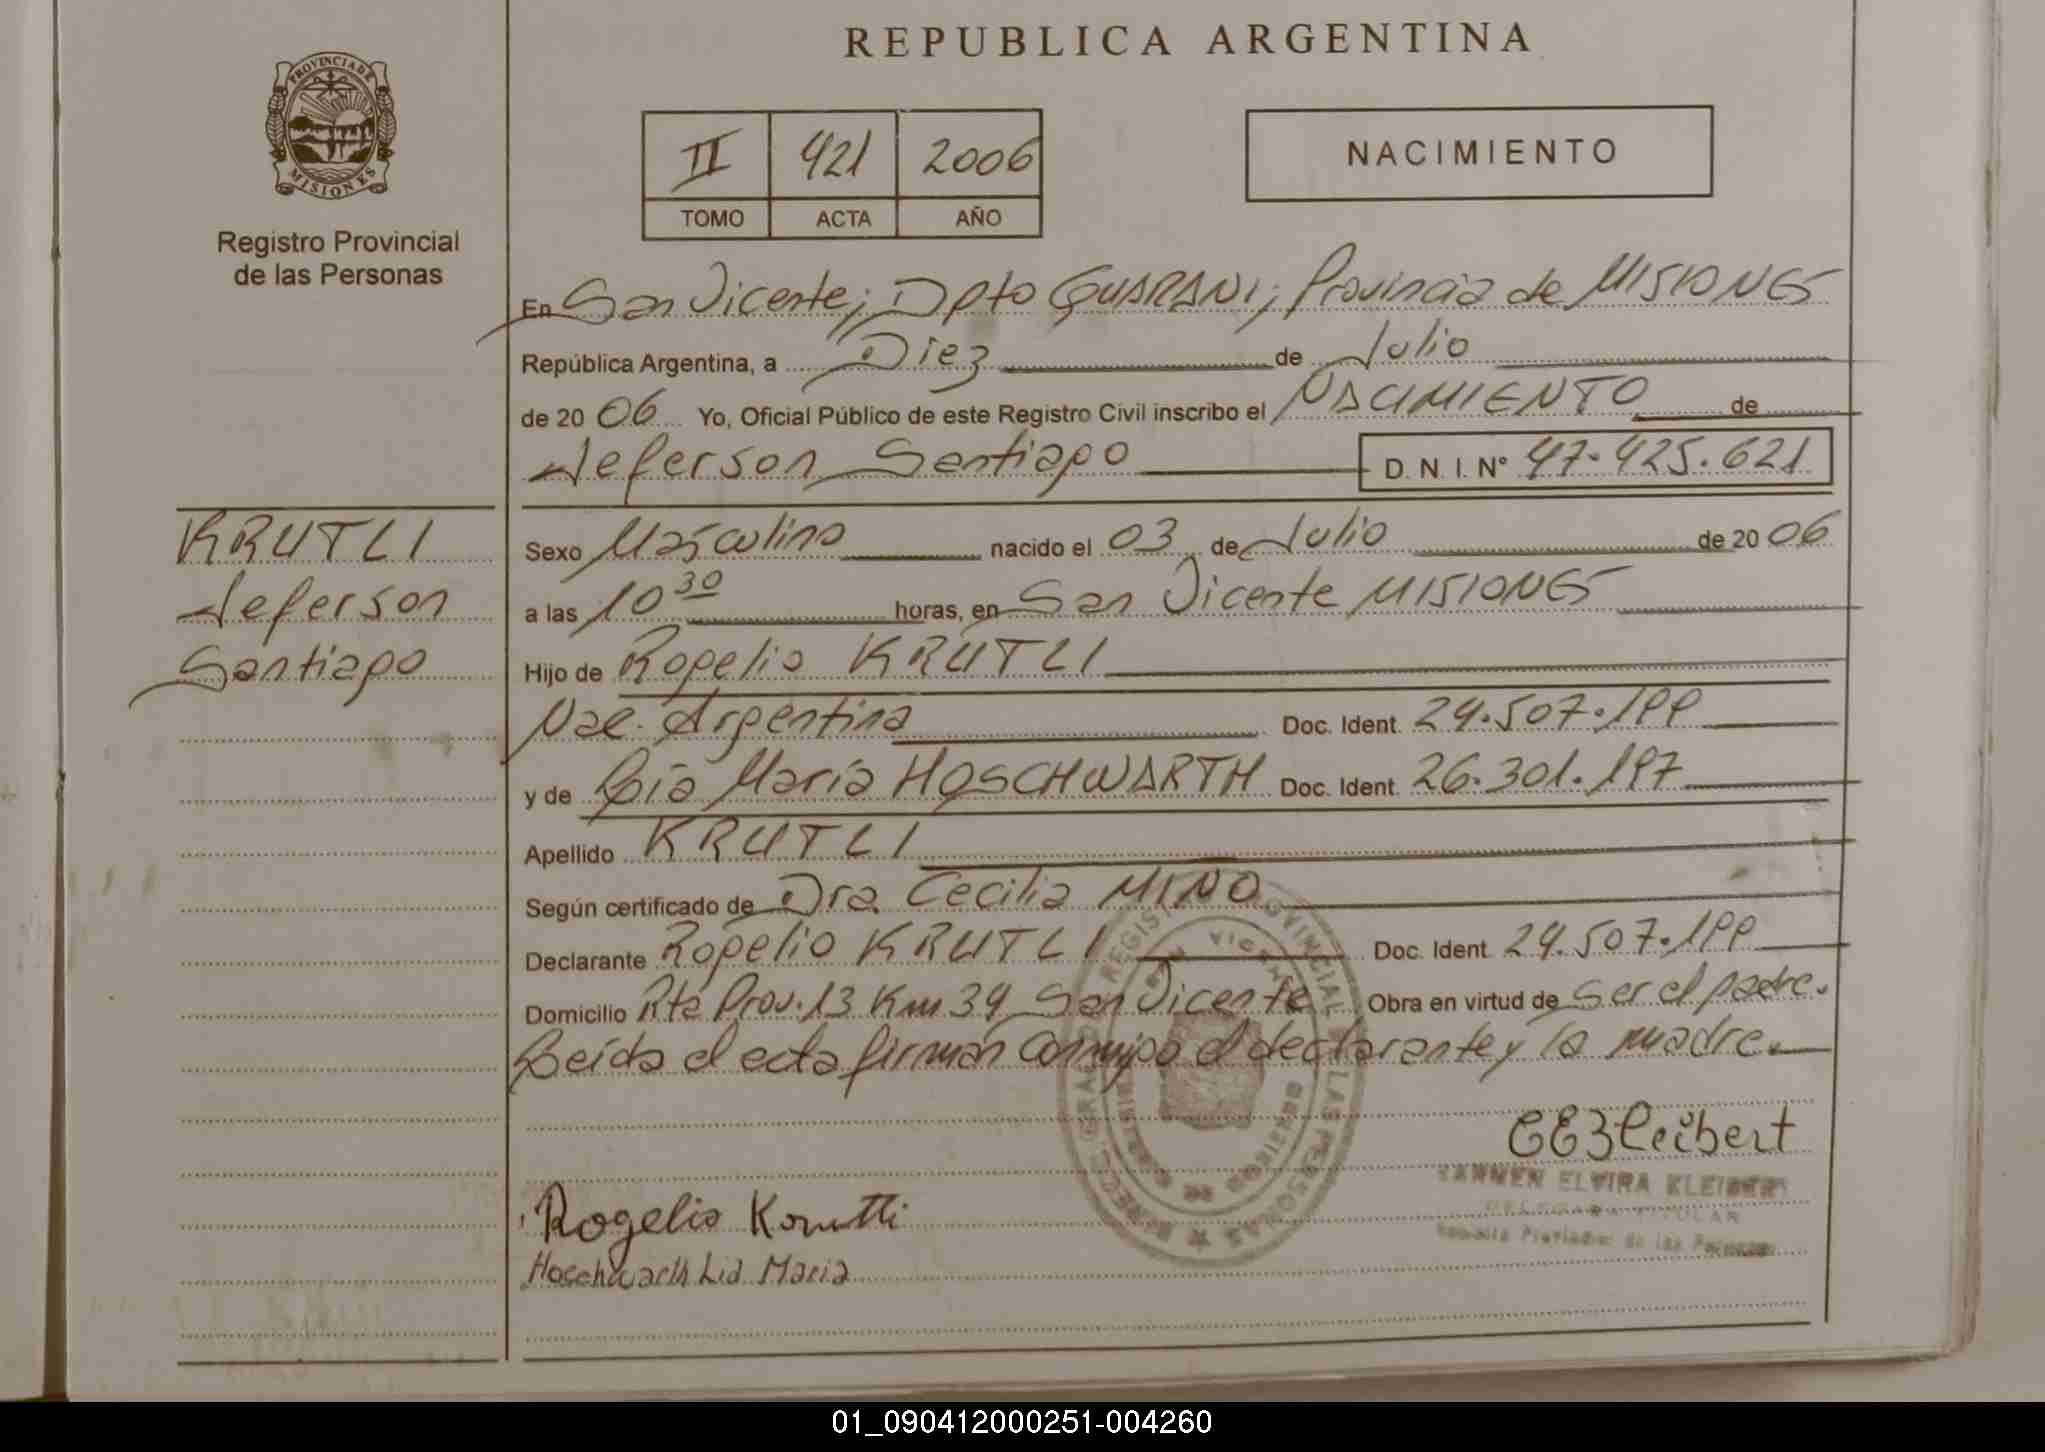 REPUBLICA ARGENTINA
PROVINCIA DE MISIONES
Registro Provincial
de las Personas
II 421 2006
TOMO ACTA AÑO
NACIMIENTO
En San Vicente; Dpto GUARANI; Provincia de MISIONES
República Argentina, a Diez de Julio
de 2006 Yo, Oficial Público de este Registro Civil inscribo el NACIMIENTO de
Jeferson Santiago D. N. I. N° 47.425.621
KRUTLI
Jeferson
Santiago
Sexo Masculino nacido el 03 de Julio de 2006
a las 10 30 horas, en San Vicente MISIONES
Hijo de Rogelio KRUTLI
Nac. Argentina Doc. Ident. 24.507.199
y de Lía María HOSCHWARTH Doc. Ident. 26.301.197
Apellido KRUTLI
Según certificado de Dra. Cecilia MINO
Declarante Rogelio KRUTLI Doc. Ident. 24.507.199
Domicilio Rta Prov. 13 Km 39 San Vicente Obra en virtud de ser el padre.
Leída el acta firman conmigo el declarante y la madre.
CEKleibert
CARMEN ELVIRA KLEIBERT
DELEGADA TITULAR
Registro Provincial de las Personas
Rogelio Krutli
Hoschwarth Lia Maria
01_090412000251-004260